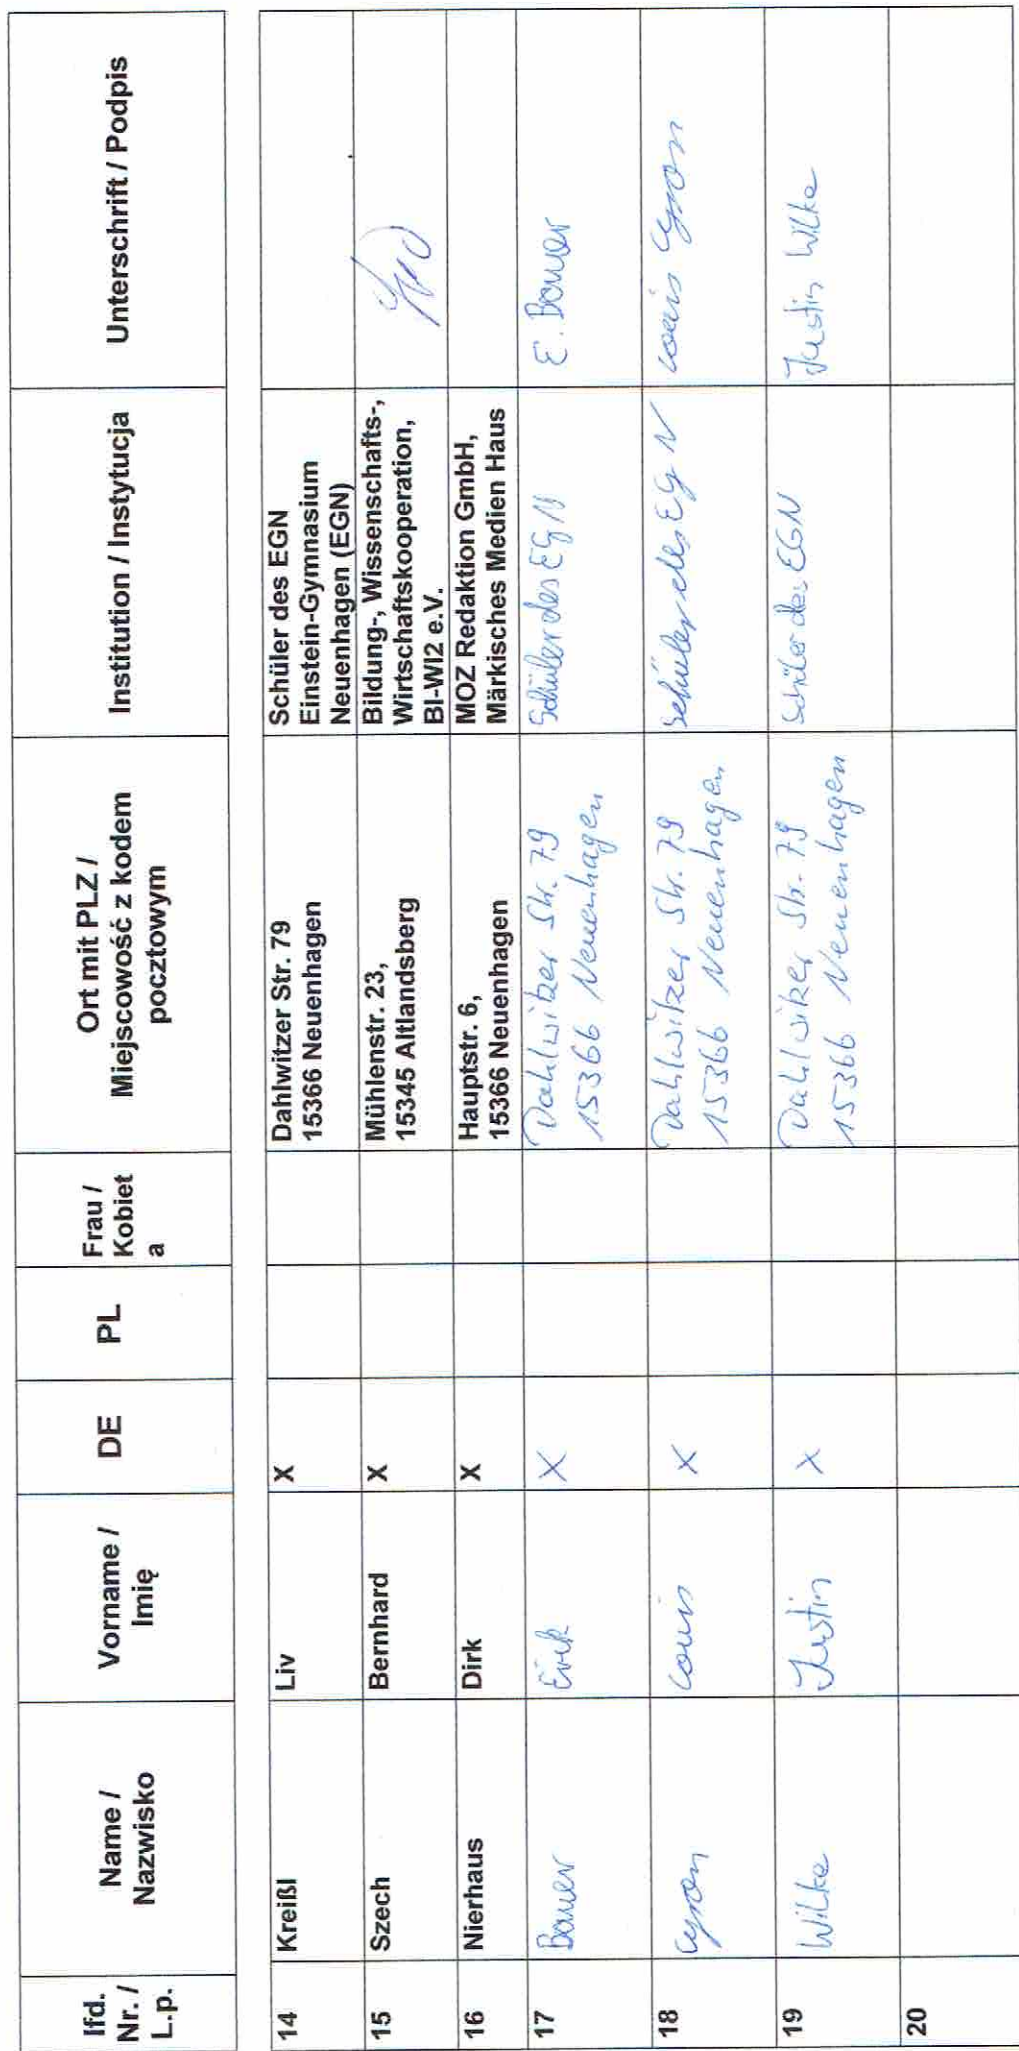 lfd.
Nr. /
L.p.
Name /
Nazwisko
Vorname /
Imię
DE
PL
Frau /
Kobiet
a
Ort mit PLZ /
Miejscowość z kodem
pocztowym
Institution / Instytucja
Unterschrift / Podpis
14
Kreißl
Liv
X
Dahlwitzer Str. 79
15366 Neuenhagen
Schüler des EGN
Einstein-Gymnasium
Neuenhagen (EGN)
15
Szech
Bernhard
X
Mühlenstr. 23,
15345 Altlandsberg
Bildung-, Wissenschafts-,
Wirtschaftskooperation,
BI-WI2 e.V.
16
Nierhaus
Dirk
X
Hauptstr. 6,
15366 Neuenhagen
MOZ Redaktion GmbH,
Märkisches Medien Haus
17
Bauer
Erik
X
Dahlwitzer Str. 79
15366 Neuenhagen
Schüler des EGN
E. Bauer
18
Cyron
Louis
X
Dahlwitzer Str. 79
15366 Neuenhagen
Schüler des EGN
Louis Cyron
19
Wilke
Justin
X
Dahlwitzer Str. 79
15366 Neuenhagen
Schüler des EGN
Justin Wilke
20